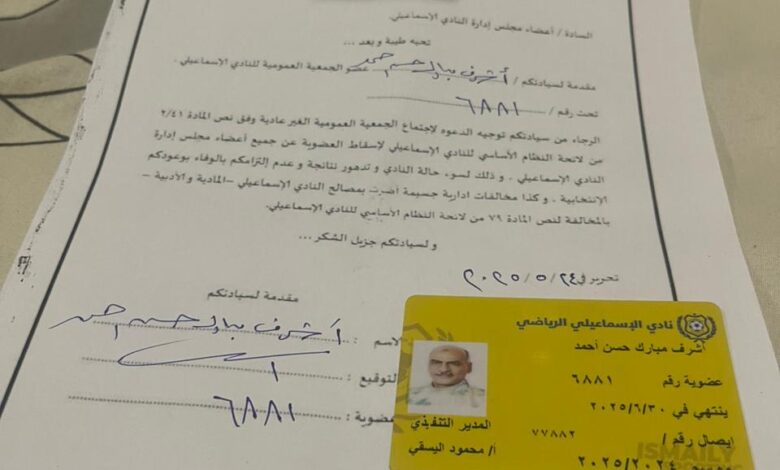 السادة / أعضاء مجلس إدارة النادي الإسماعيلي.
تحيه طيبة و بعد ...
مقدمة لسيادتكم / أشرف مبارك حسن احمد عضو الجمعية العمومية للنادي الإسماعيلي .
تحت رقم / ٦٨٨١
الرجاء من سيادتكم توجيه الدعوه لإجتماع الجمعية العمومية الغير عادية وفق نص المادة ٢/٤١
من لائحة النظام الأساسي للنادي الإسماعيلي لإسقاط العضوية عن جميع أعضاء مجلس إدارة
النادي الإسماعيلي . و ذلك لسوء حالة النادي و تدهور نتائجة و عدم إلتزامكم بالوفاء بوعودكم
الإنتخابية . و كذا مخالفات ادارية جسيمة أضرت بمصالح النادي الإسماعيلي –المادية و الأدبية –
بالمخالفة لنص المادة ٧٩ من لائحة النظام الأساسي للنادي الإسماعيلي.
و لسيادتكم جزيل الشكر ...
تحرير في ٢٠٢٥/٥/٢٤
مقدمة لسيادتكم
الاسم : أشرف مبارك حسن احمد
التوقيع :
عضوية : ٦٨٨١
نادي الإسماعيلي الرياضي
أشرف مبارك حسن أحمد
عضوية رقم ٦٨٨١
ينتهي في ٢٠٢٥/٦/٣٠
ايصال رقم / ٧٧٨٨٢
٢٠٢٥/٢٠٢٤
المدير التنفيذي
أ/ محمود اليسقي
ISMAILY